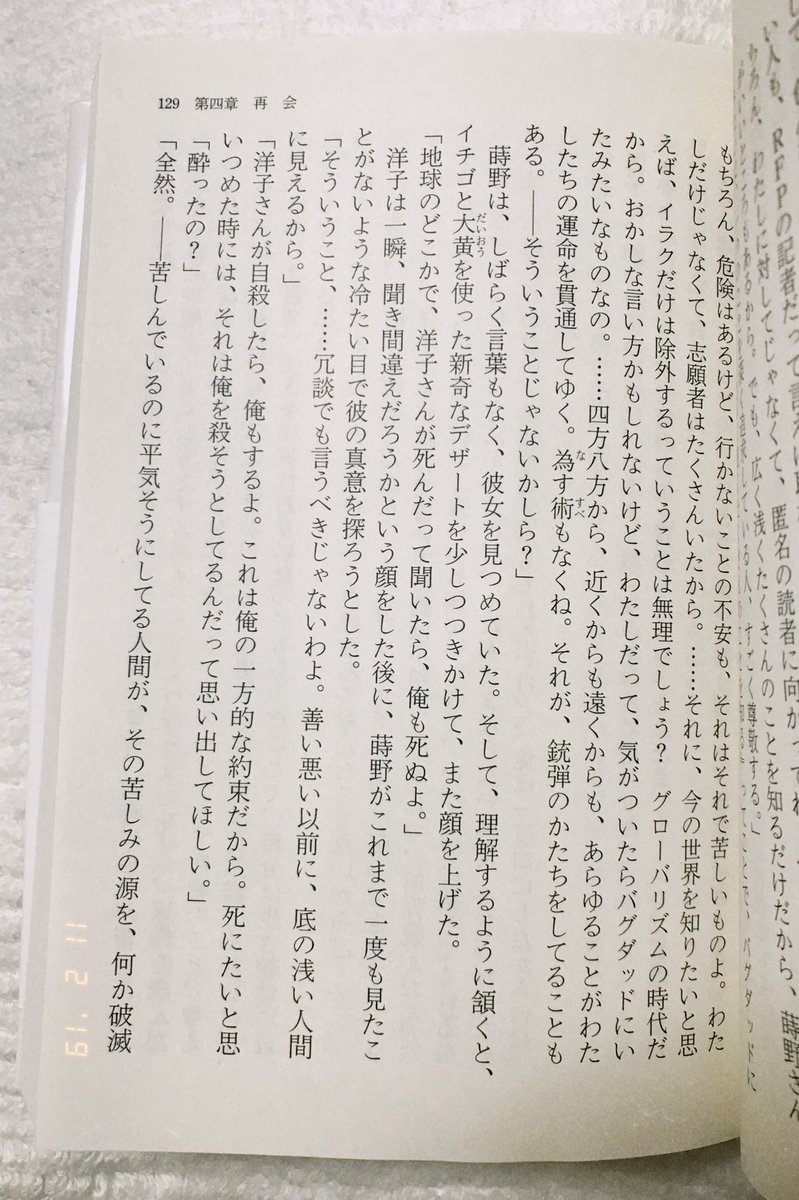 129 第四章 再 会
もちろん、危険はあるけど、行かないことの不安も、それはそれで苦しいものよ。わた
しだけじゃなくて、志願者はたくさんいたから。……それに、今の世界を知りたいと思
えば、イラクだけは除外するっていうことは無理でしょう? グローバリズムの時代だ
から。おかしな言い方かもしれないけど、わたしだって、気がついたらバグダッドにい
たみたいなものなの。……四方八方から、近くからも遠くからも、あらゆることがわた
したちの運命を貫通してゆく。為す術もなくね。それが、銃弾のかたちをしてることも
ある。――そういうことじゃないかしら?」
蒔野は、しばらく言葉もなく、彼女を見つめていた。そして、理解するように頷くと、
イチゴと大黄を使った新奇なデザートを少しつつきかけて、また顔を上げた。
「地球のどこかで、洋子さんが死んだって聞いたら、俺も死ぬよ。」
洋子は一瞬、聞き間違えだろうかという顔をした後に、蒔野がこれまで一度も見たこ
とがないような冷たい目で彼の真意を探ろうとした。
「そういうこと、……冗談でも言うべきじゃないわよ。善い悪い以前に、底の浅い人間
に見えるから。」
「洋子さんが自殺したら、俺もするよ。これは俺の一方的な約束だから。死にたいと思
いつめた時には、それは俺を殺そうとしてるんだって思い出してほしい。」
「酔ったの?」
「全然。――苦しんでいるのに平気そうにしてる人間が、その苦しみの源を、何か破滅
11 2 '19